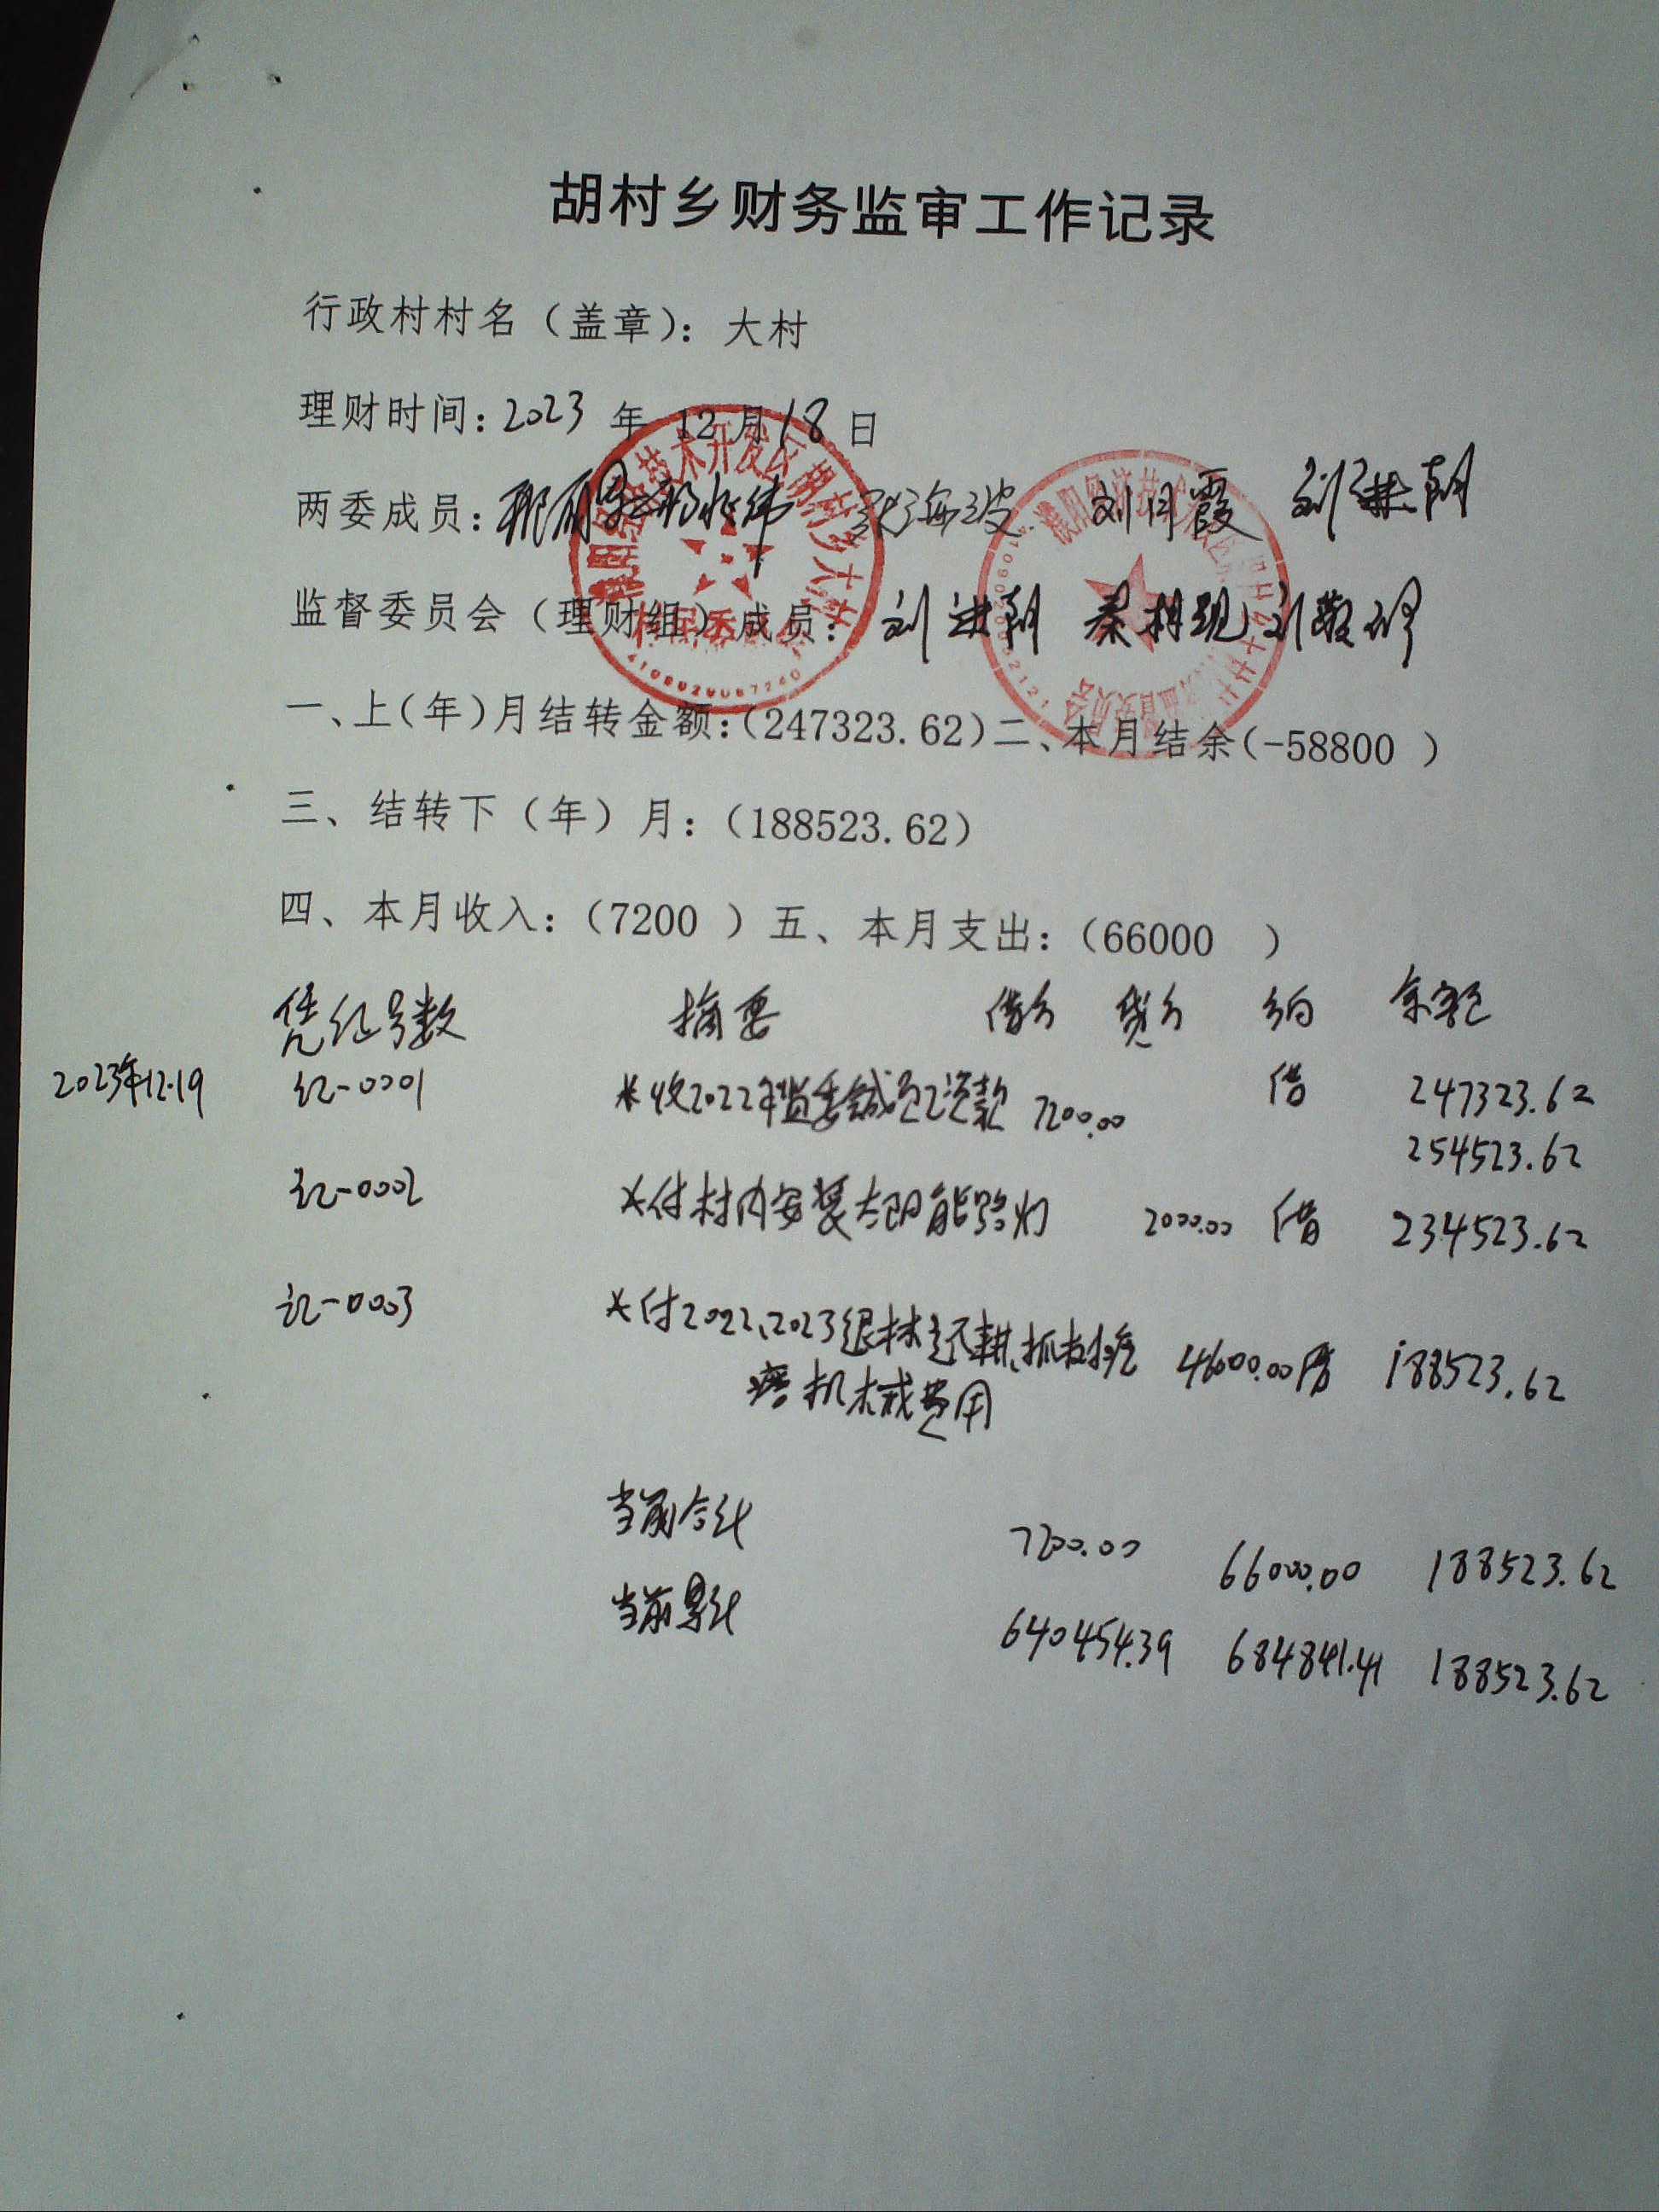 胡村乡财务监审工作记录
行政村村名（盖章）：大村
理财时间：2023 年 12 月 18 日
两委成员： 海波 刘月霞 刘进朝
监督委员会（理财组）成员： 刘进朝 刘敬
一、上（年）月结转金额：（247323.62）二、本月结余（-58800 ）
三、结转下（年）月：（188523.62）
四、本月收入：（7200 ）五、本月支出：（66000 ）
凭记号数 摘要 借方 贷方 方向 余额
2023年12.19 记-0001 *收2022年监委 款 7200.00 借 247323.62
254523.62
记-0002 *付村内安装太阳能路灯 2000.00 借 234523.62
记-0003 *付2022、2023退林还耕、 46000.00 借 188523.62
机械费用
当前合计 7200.00 66000.00 188523.62
当前累计 640454.39 684841.41 188523.62
技术开发区胡村乡大村
村民委员会
4109020067240